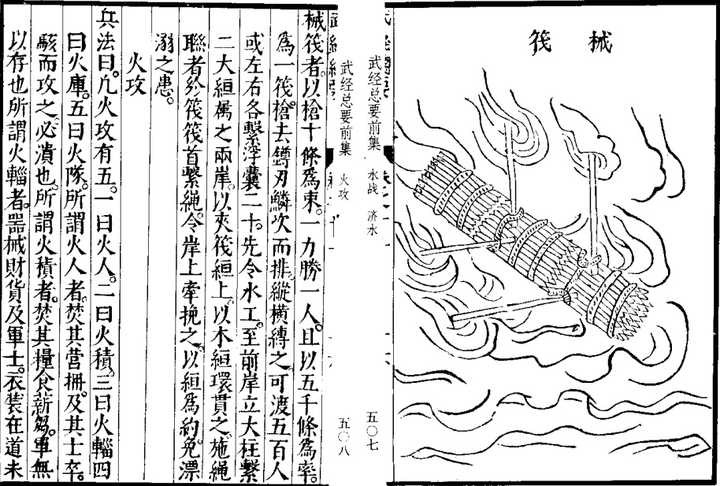 械筏
武经总要前集 水战 济水 五〇七
武经总要前集 火攻 五〇八
械筏者。以槍十條為束。一力勝一人。且以五千條為率。
為一筏。槍去鐏刃。鱗次而排。縱橫縛之。可渡五百人
或左右各繫浮囊二十。先令水工。至前岸立大柱繫
二大絙屬之兩岸。以夾筏絙上。以木絙環貫之。施繩
聯者於筏。筏首繫繩。令岸上牽挽之。以絙為約。免漂
溺之患。
火攻
兵法曰。凡火攻有五。一曰火人。二曰火積。三曰火輜四
曰火庫。五曰火隊。所謂火人者。焚其營柵。及其士卒。
駭而攻之。必潰也。所謂火積者。焚其糧食薪芻。軍無
以存也所謂火輜者。器械財貨及軍士。衣裝在道未